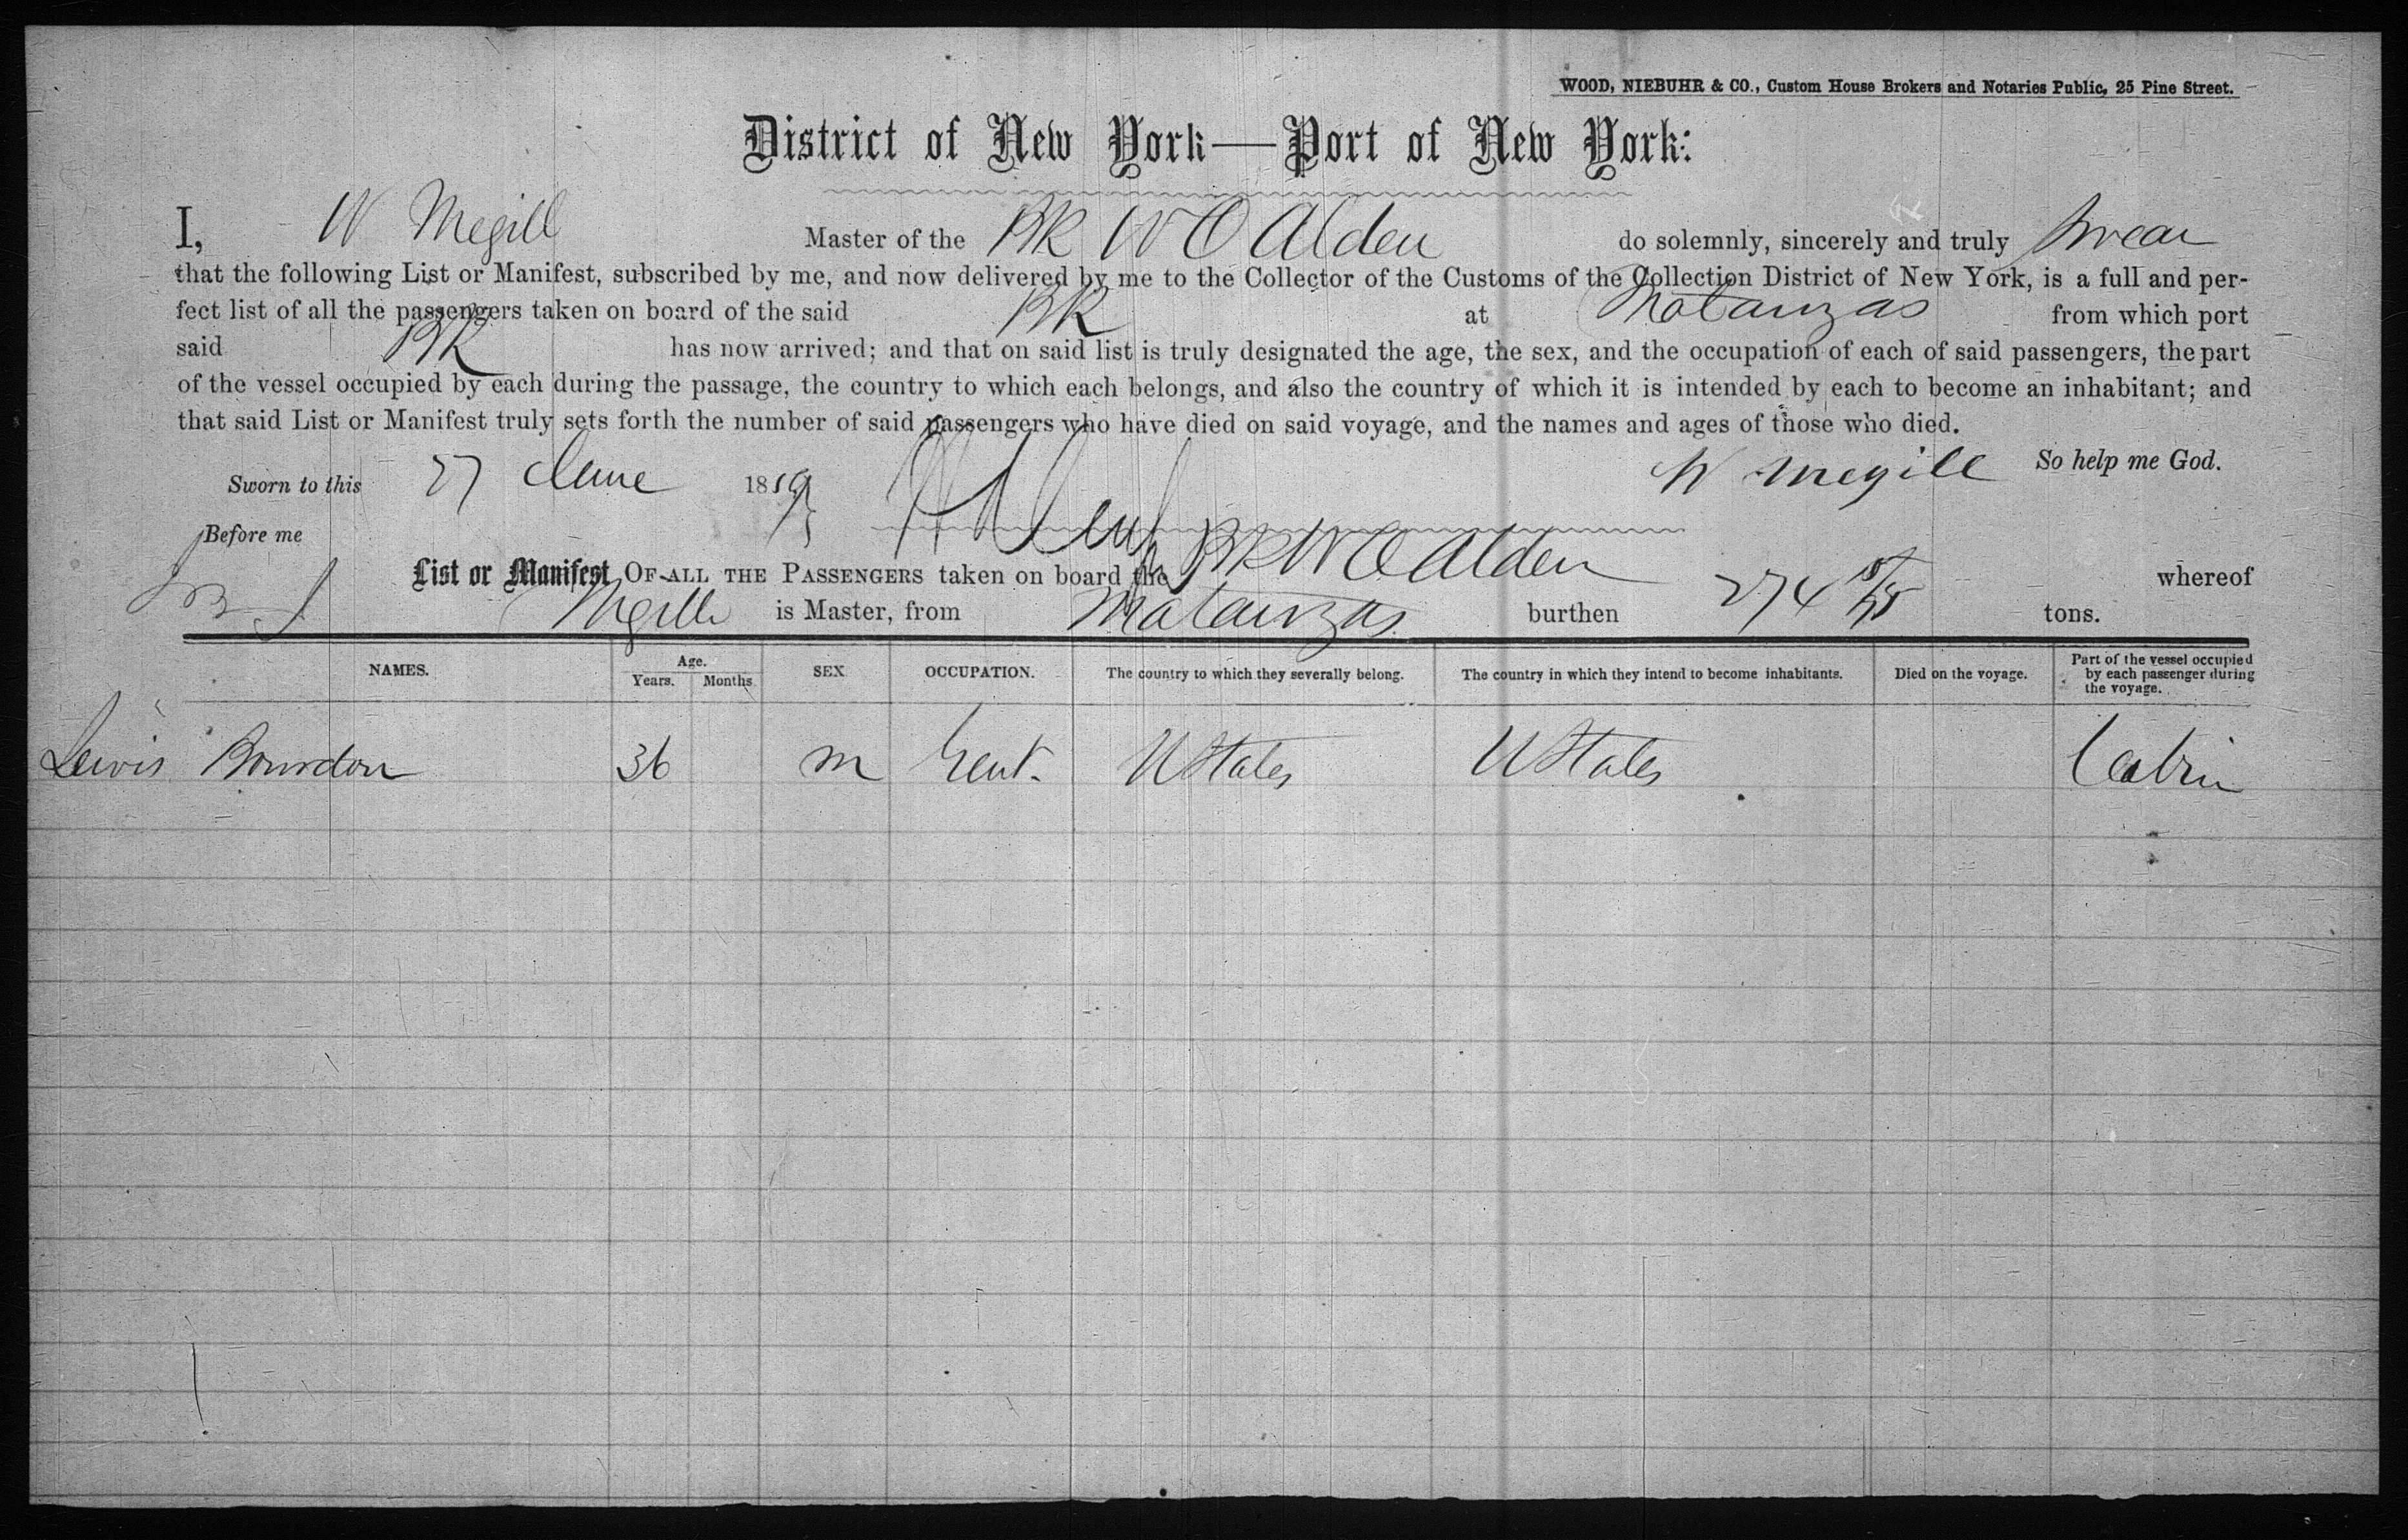 WOOD, NIEBUHR & CO., Custom House Brokers and Notaries Public, 25 Pine Street.
District of New York—Port of New York:
I, W Megill Master of the BK W O Alden do solemnly, sincerely and truly swear
that the following List or Manifest, subscribed by me, and now delivered by me to the Collector of the Customs of the Collection District of New York, is a full and per-
fect list of all the passengers taken on board of the said BK at Matanzas from which port
said BK has now arrived; and that on said list is truly designated the age, the sex, and the occupation of each of said passengers, the part
of the vessel occupied by each during the passage, the country to which each belongs, and also the country of which it is intended by each to become an inhabitant; and
that said List or Manifest truly sets forth the number of said passengers who have died on said voyage, and the names and ages of those who died.
W Megill So help me God.
Sworn to this 27 June 1859
Before me
List or Manifest OF ALL THE PASSENGERS taken on board the BK W O Alden whereof
Megill is Master, from Matanzas burthen 274 tons.
NAMES. Age. Years. Months SEX OCCUPATION. The country to which they severally belong. The country in which they intend to become inhabitants. Died on the voyage. Part of the vessel occupied by each passenger during the voyage.
Lewis Bourdon 36 m Gent. UStates UStates Cabin